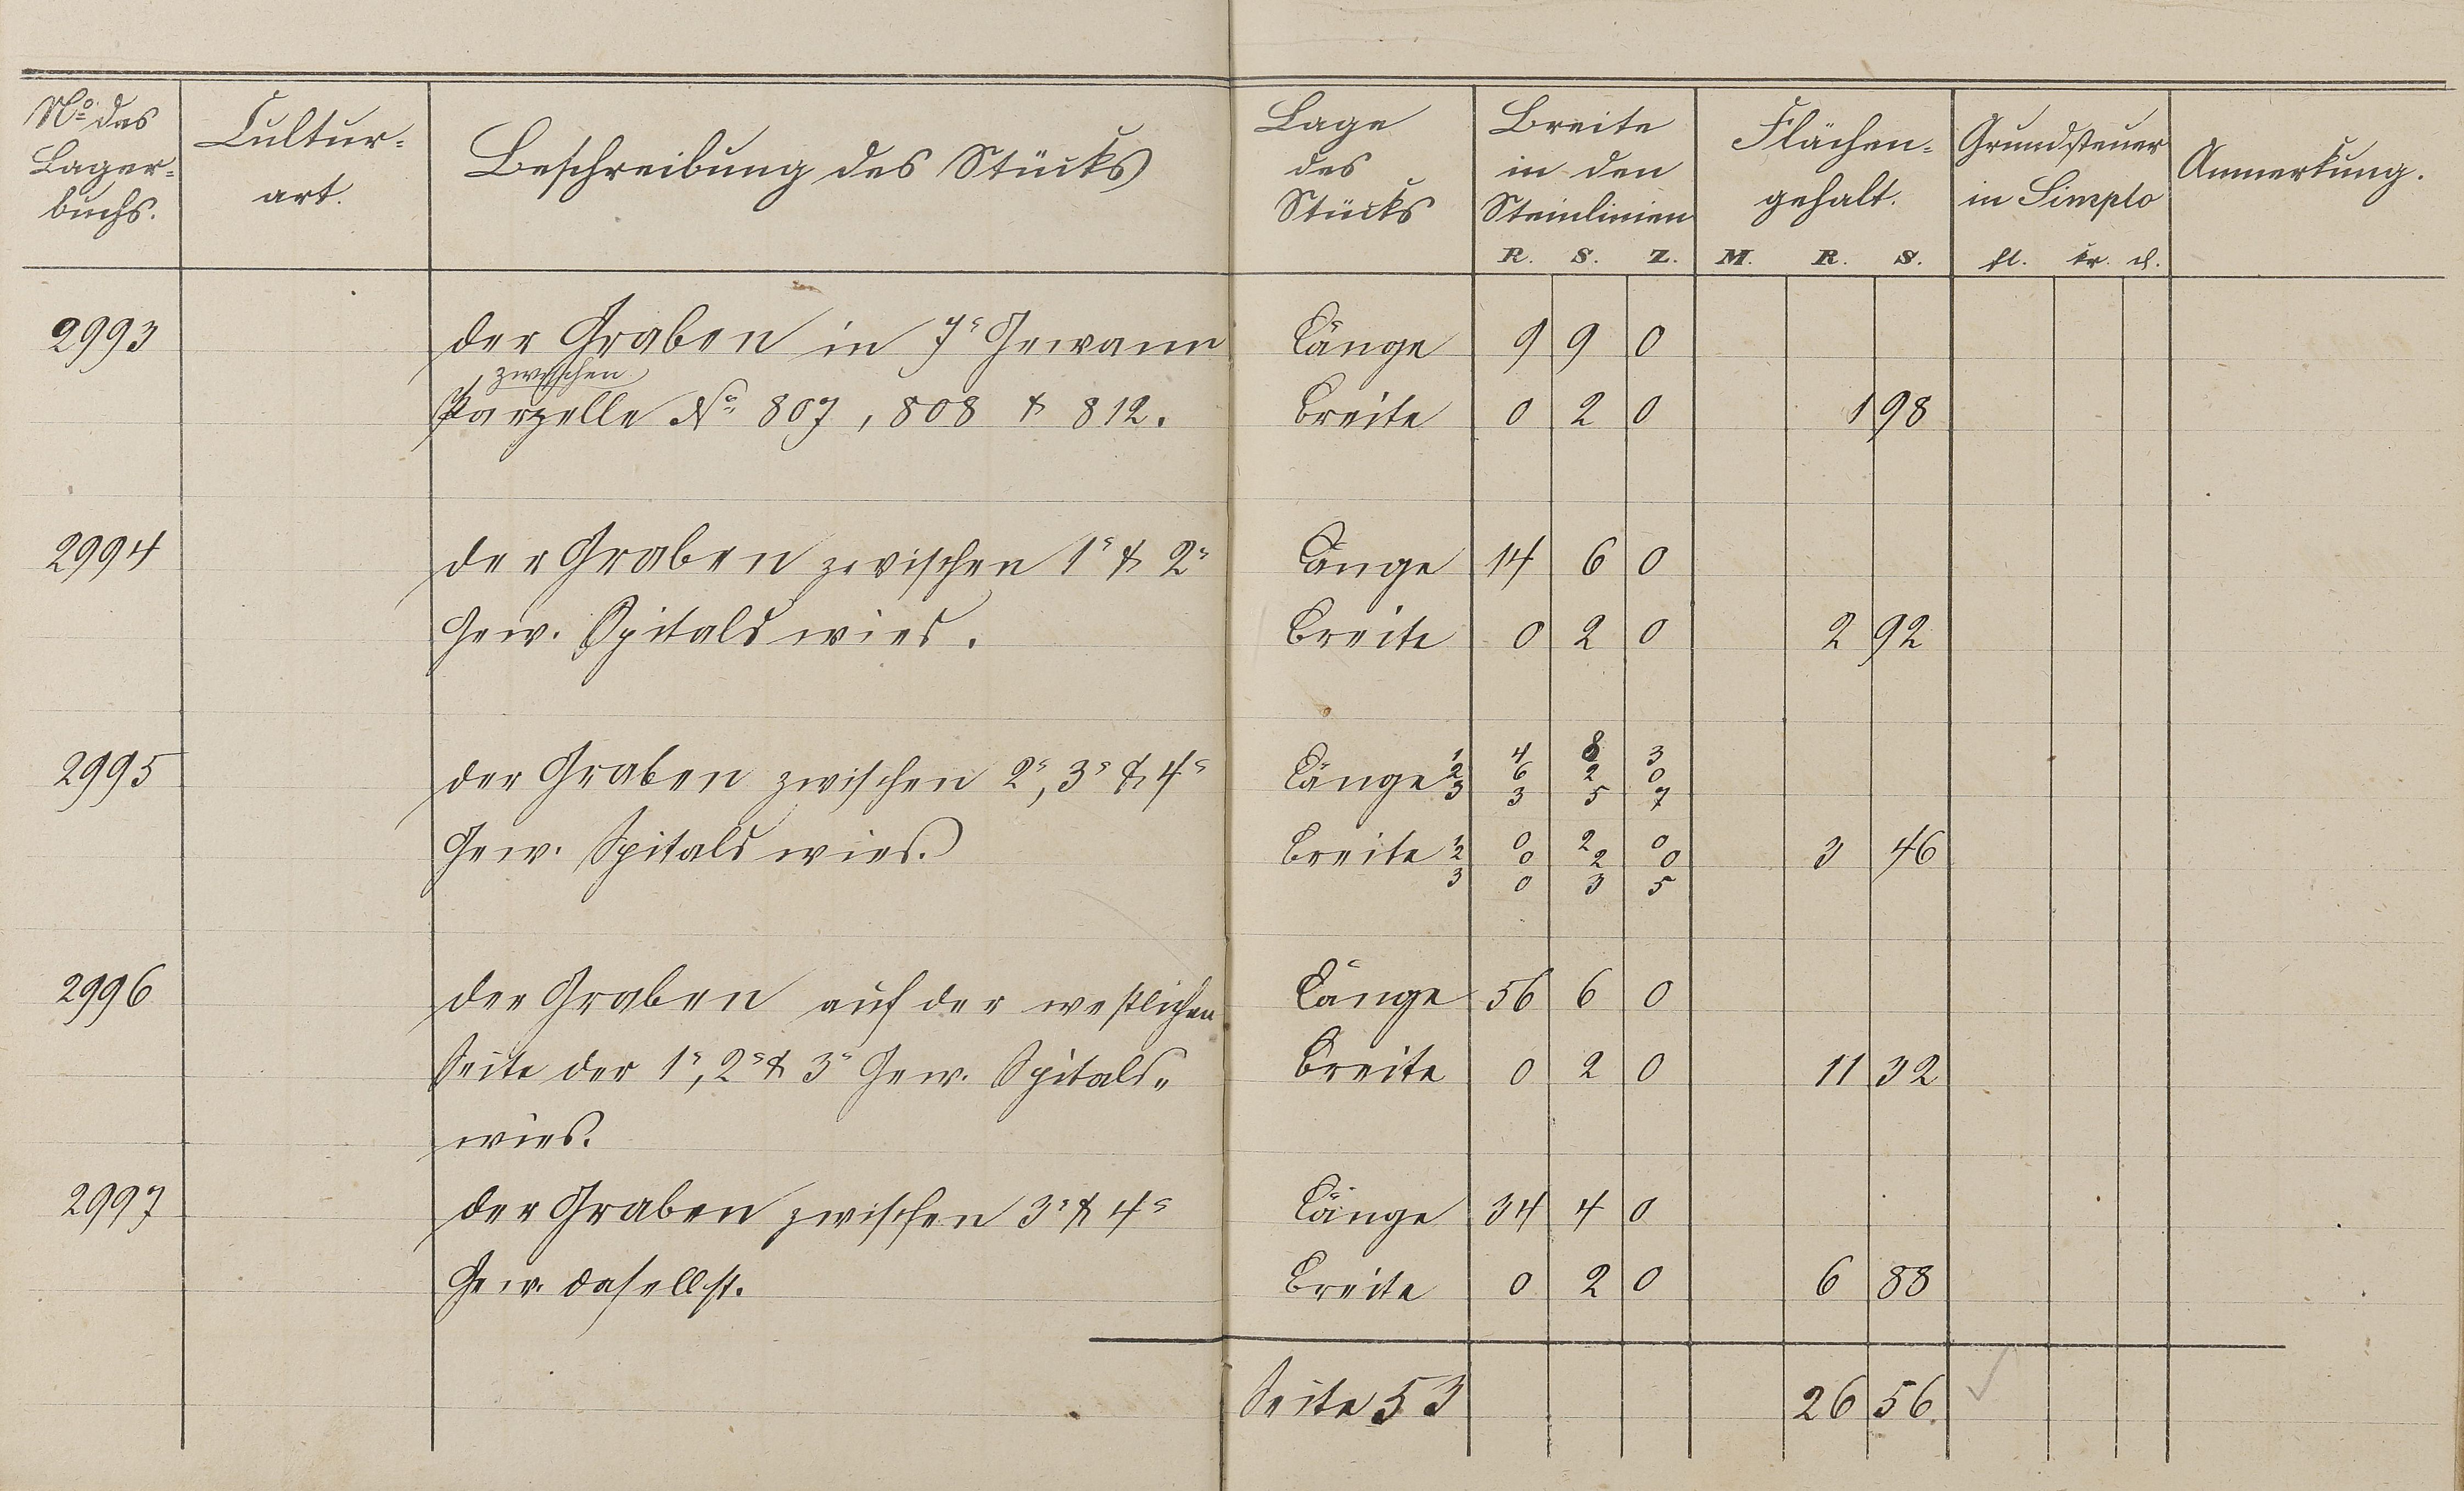 No. des Lager= buchs.
Cultur= art.
Beschreibung des Stücks
Lage des Stücks
Breite in den Steinlinien
R. S. Z.
Flächen= gehalt.
M. R. S.
Grundsteuer in Simplo
fl. kr. d.
Anmerkung.
2993 der Graben in 7r Gewann Länge 9 9 0
zwischen
Parzelle No. 807, 808 & 812. Breite 0 2 0 1 98
2994 der Graben zwischen 1r & 2r Länge 14 6 0
Gew. Spitalswies. Breite 0 2 0 2 92
2995 der Graben zwischen 2r, 3r & 4r Länge 1 4 8 3
2 6 2 0
3 3 5 7
Gew. Spitalswies. Breite 1 0 2 0 3 46
2 0 2 0
3 0 3 5
2996 der Graben auf der westlichen Länge 56 6 0
Seite der 1r, 2r & 3r Gew. Spitals= Breite 0 2 0 11 32
wies.
2997 der Graben zwischen 3r & 4r Länge 34 4 0
Gew. dasellst. Breite 0 2 0 6 88
Seite 53 26 56.